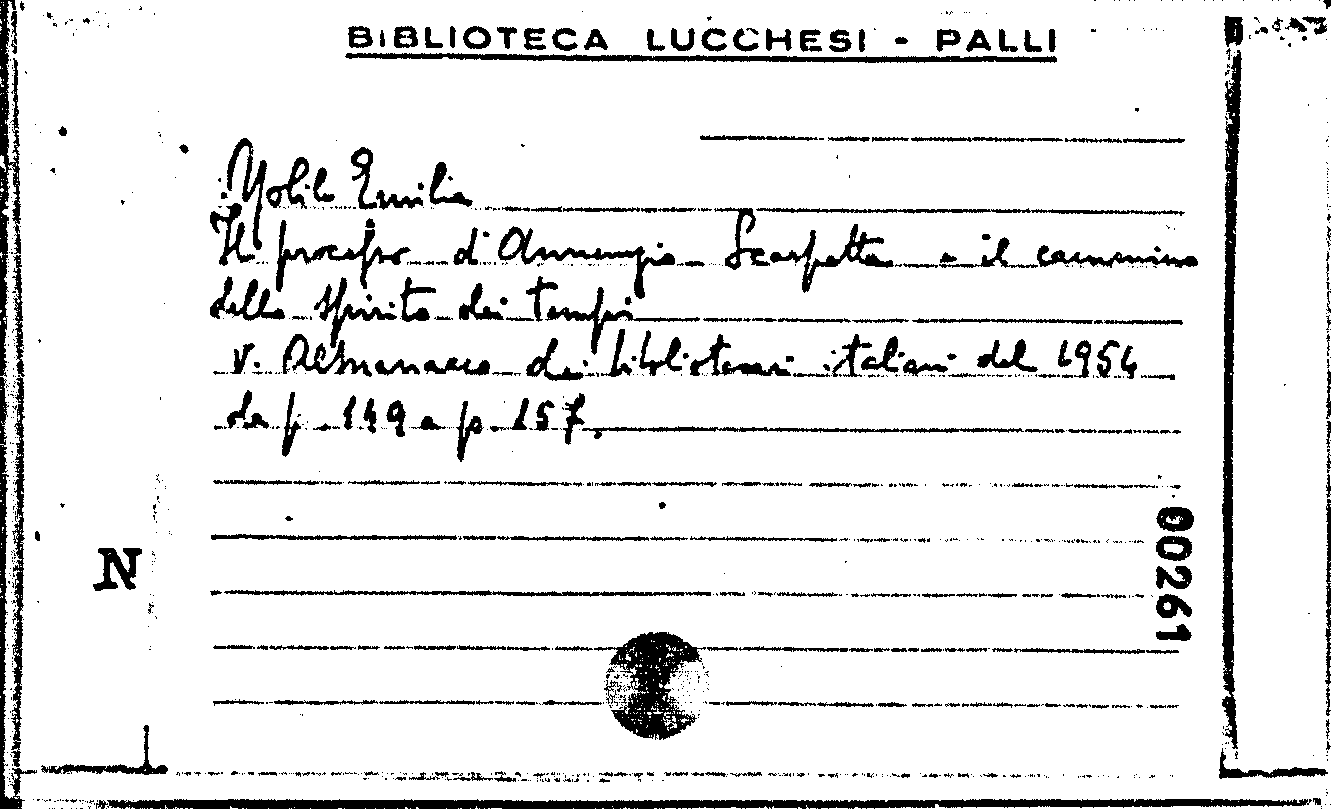 BIBLIOTECA LUCCHESI - PALLI
Nobile Emilia
Il processo d'Annunzio Scarpetta e il cammino
dello spirito dei tempi
V. Almanacco dei bibliotecari italiani del 1954
da p. 149 a p. 157.
N
00261